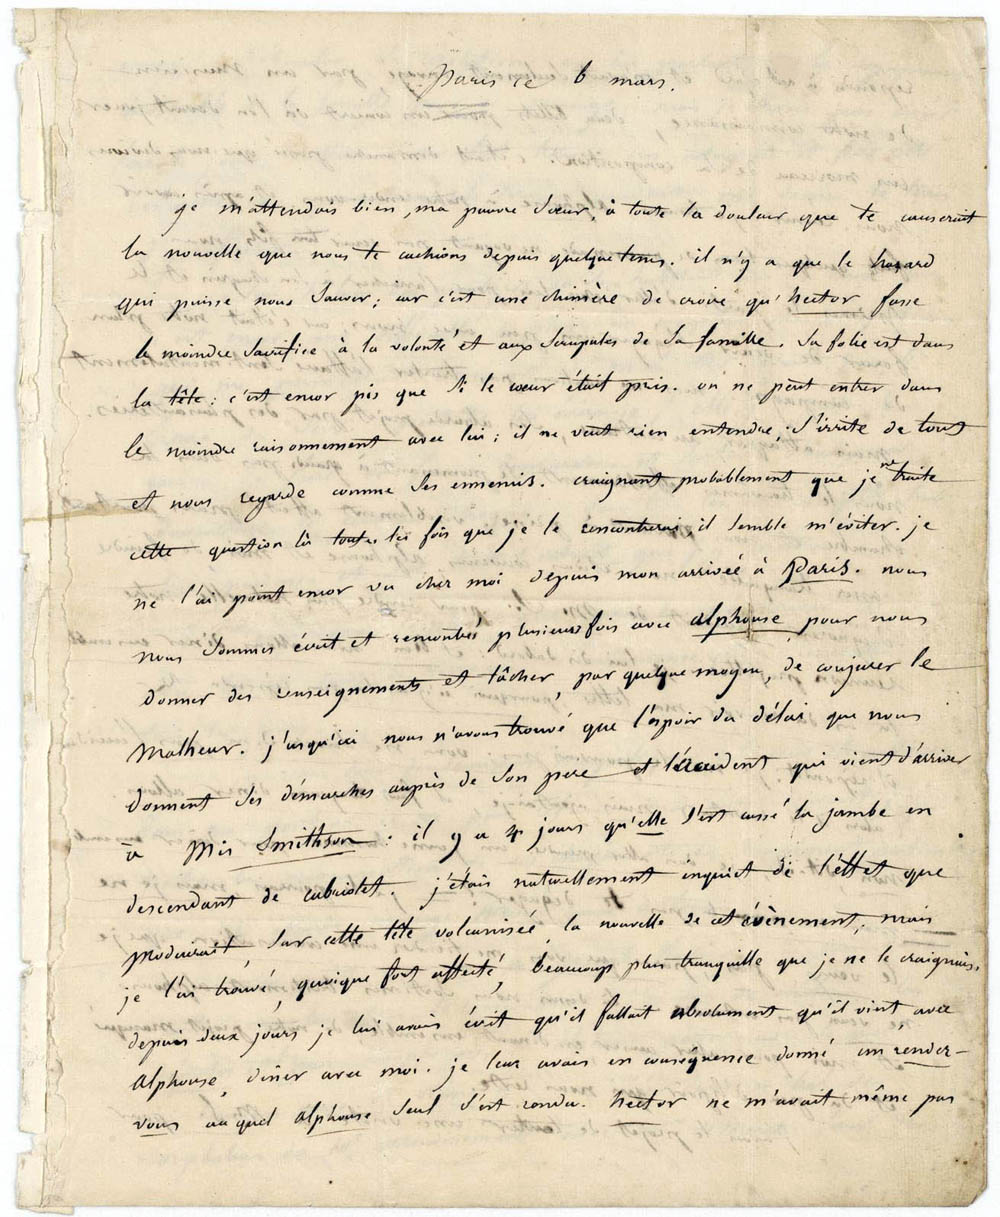 Paris ce 6 mars.
je m'attendais bien, ma pauvre sœur, à toute la douleur que te causerait
la nouvelle que nous te cachions depuis quelque tems. il n'y a que le hazard
qui puisse nous sauver; car c'est une chimère de croire qu'hector fasse
le moindre sacrifice à la volonté et aux scrupules de sa famille. sa folie est dans
la tête: c'est encor pis que si le cœur était pris. on ne peut entrer dans
le moindre raisonnement avec lui; il ne veut rien entendre, s'irrite de tout
et nous regarde comme ses ennemis. craignant probablement que je ne traite
cette question là toutes les fois que je le rencontrerai il semble m'éviter. je
ne l'ai point encor vu chez moi depuis mon arrivée à Paris. nous
nous sommes écrit et rencontrés plusieurs fois avec alphonse pour nous
donner des renseignements et tâcher, par quelque moyen, de conjurer le
Malheur. j'usqu'ici nous n'avons trouvé que l'espoir du délai que nous
donnent ses démarches auprès de son pere et l'accident qui vient d'arriver
à Mis Smithson: il y a 4 jours qu'elle s'est cassé la jambe en
descendant de cabriolet. j'étais naturellement inquiet de l'effet que
produirait, sur cette tête volcanisée, la nouvelle de cet évènement, mais
je l'ai trouvé, quoique fort affecté, beaucoup plus tranquille que je ne le craignais.
depuis deux jours je lui avais écrit qu'il fallait absolument qu'il vint, avec
alphonse, diner avec moi. je leur avais en conséquence donné un rendez-
vous auquel alphonse seul s'est rendu. hector ne m'avait même pas